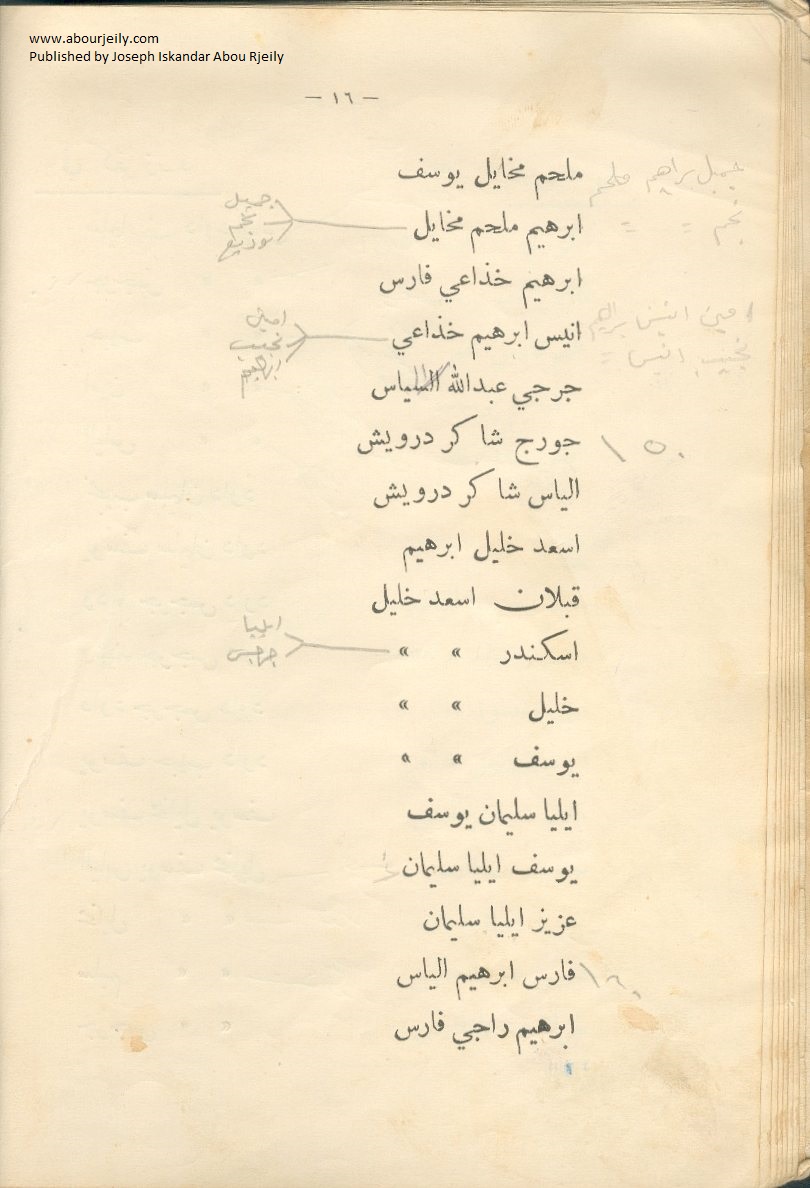 www.abourjeily.com
Published by Joseph Iskandar Abou Rjeily
— ١٦ —
ملحم مخايل يوسف
جميل براهيم ملحم
نجم = =
ابرهيم ملحم مخايل
جميل
نجم
توزيع
ابرهيم خذاعي فارس
انيس ابرهيم خذاعي
امين انيس براهيم
نجيب انيس =
امين
نجيب
براهيم
جرجي عبدالله السياس
جورج شاكر درويش
١٥٠
الياس شاكر درويش
اسعد خليل ابرهيم
قبلان اسعد خليل
اسكندر » »
ايليا
جرجس
خليل » »
يوسف » »
ايليا سليمان يوسف
يوسف ايليا سليمان
عزيز ايليا سليمان
فارس ابرهيم الياس
١٦٠
ابرهيم راجي فارس